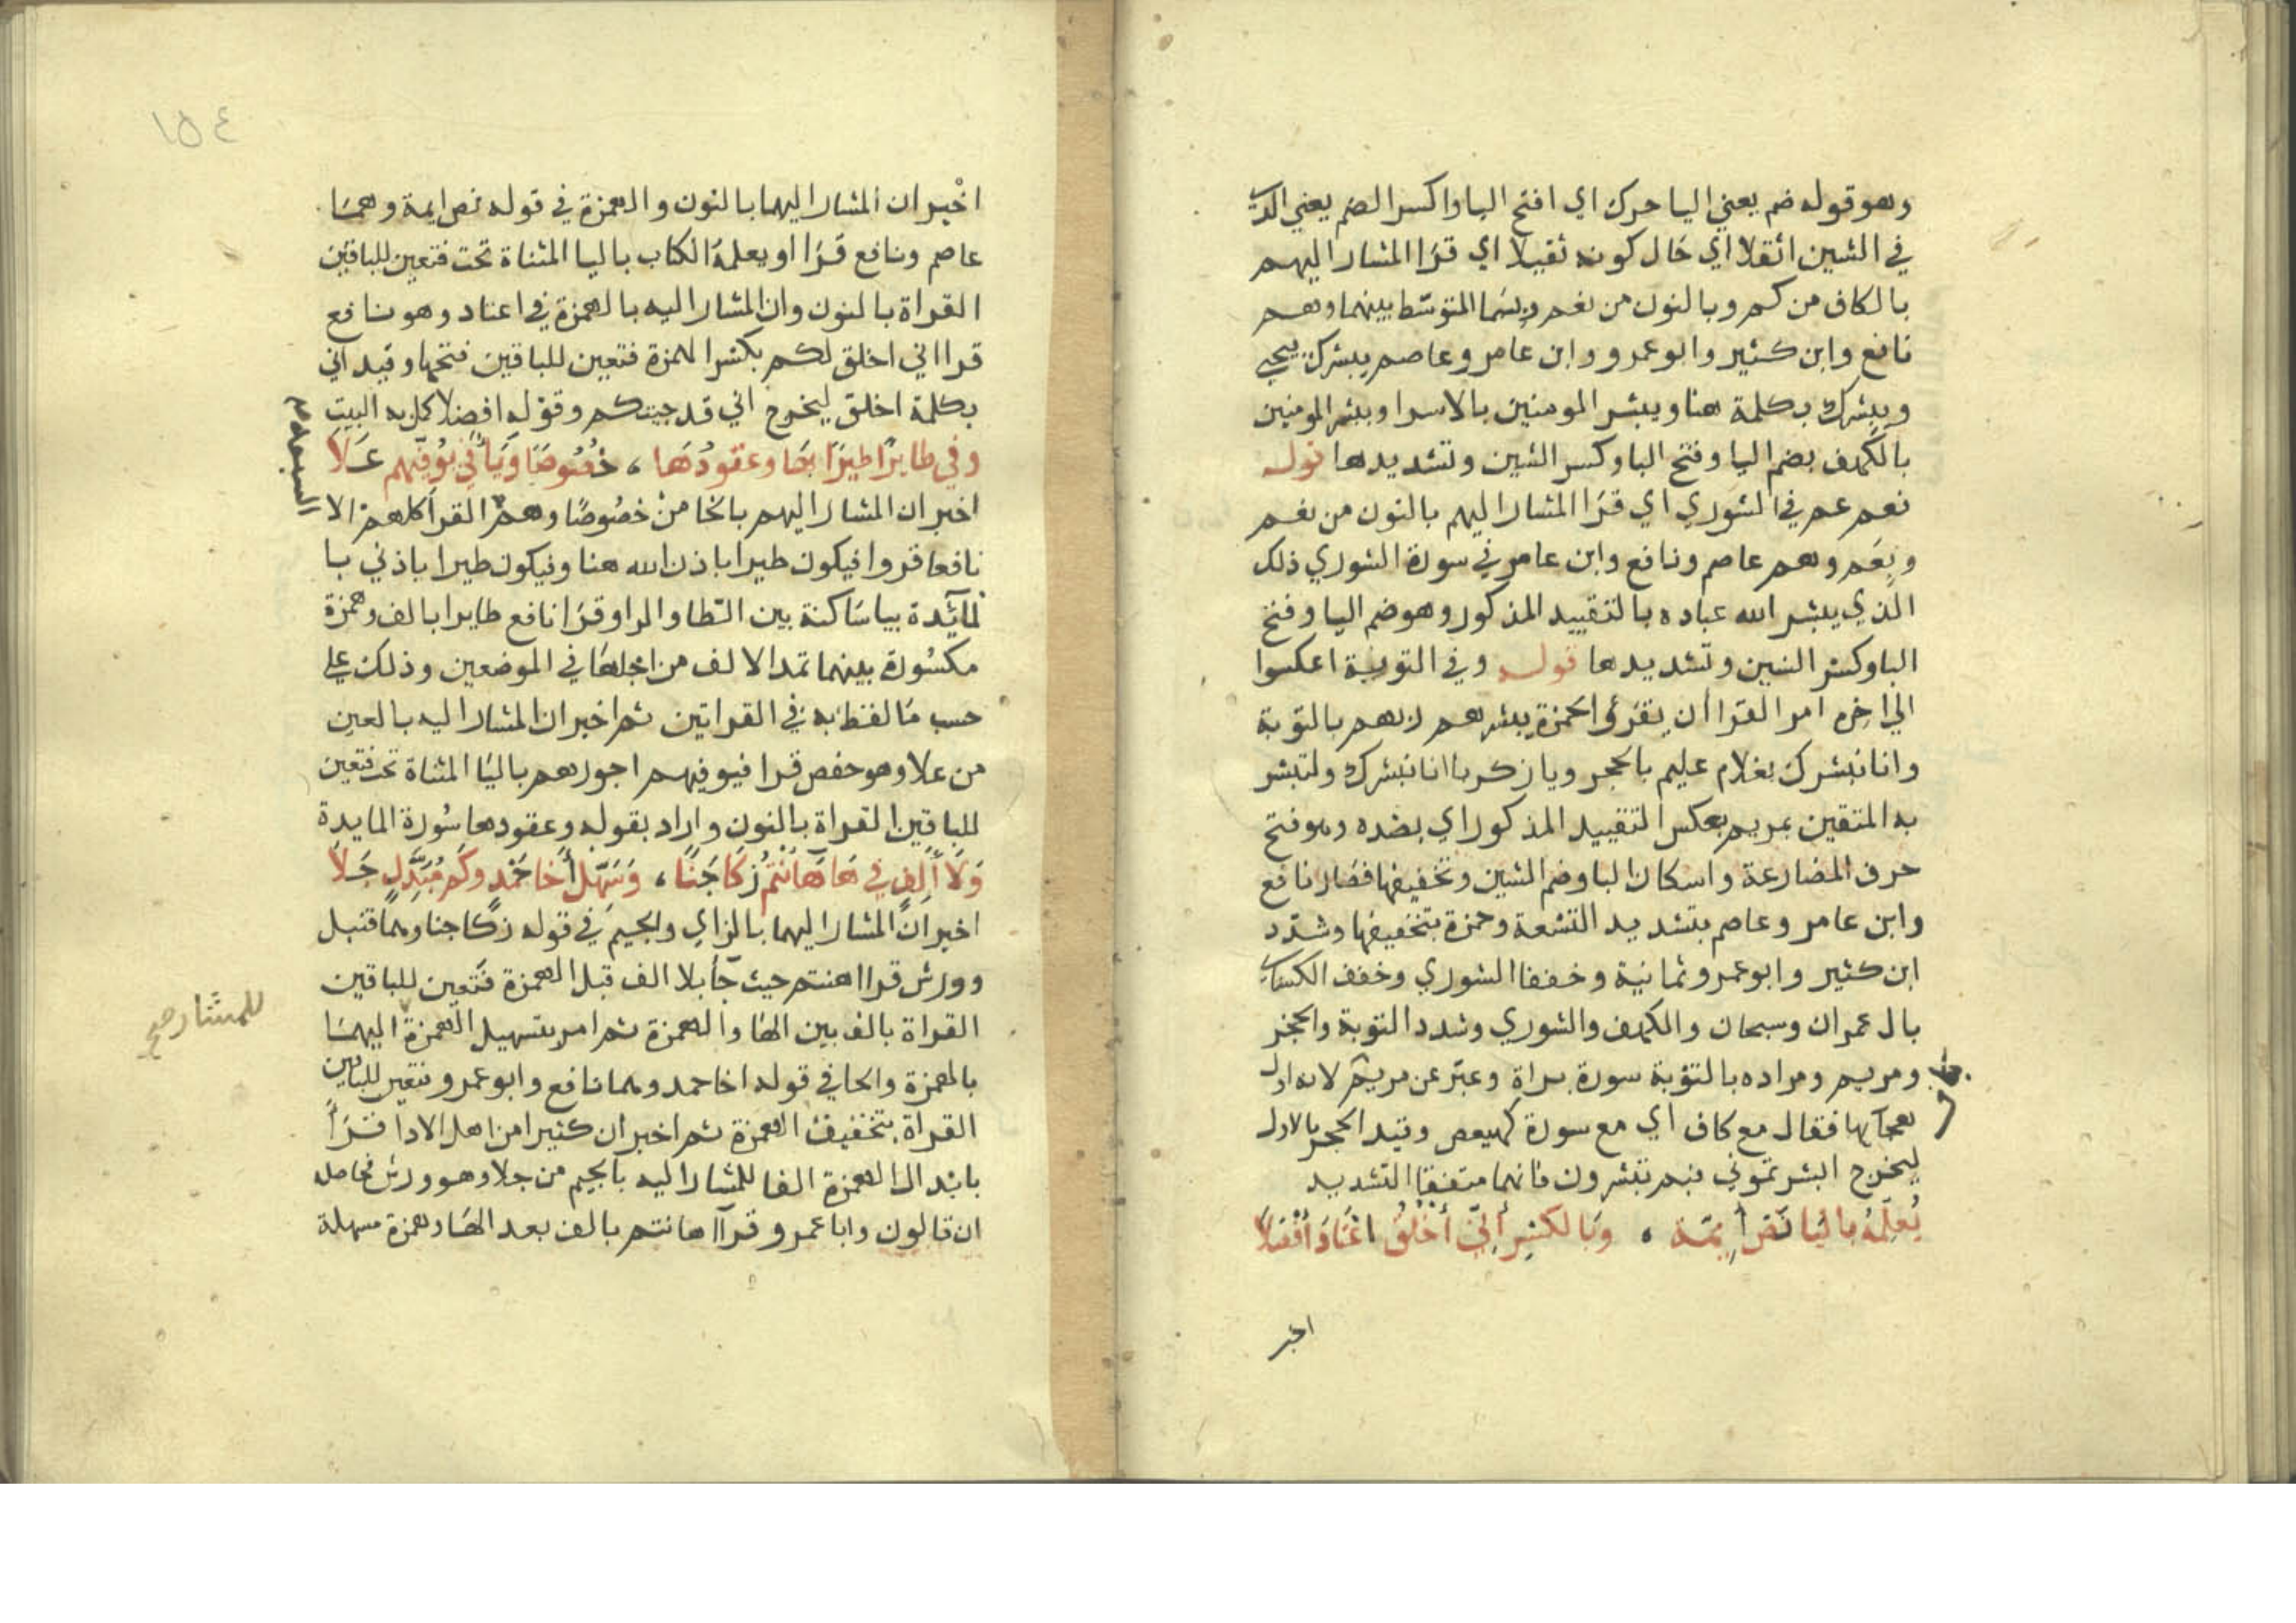 وهو قوله ضم يعني اليا حرك اي افتح البا واكسر الضم يعني الذي
في الشين اثقلا اي حال كونه ثقيلا اي قرا المشار اليهم
بالكاف من كم وبالنون من نعم وبسما المتوسط بينهما وهم
نافع وابن كثير وابو عمرو وابن عامر وعاصم يبشرك بيحيي
ويبشرك بكلمة هنا ويبشر المومنين بالاسرا ويبشر المومنين
بالكهف بضم اليا وفتح البا وكسر الشين وتشديدها قوله
نعم عم في الشوري اي قرا المشار اليهم بالنون من نعم
وبعم وهم عاصم ونافع وابن عامر في سورة الشوري ذلك
الذي يبشر الله عباده بالتقييد المذكور وهو ضم اليا وفتح
البا وكسر الشين وتشديدها قوله وفي التوبة اعكسوا
الي اخره امر القرا أن يقرؤا لحمزة يبشرهم ربهم بالتوبة
وانا نبشرك بغلام عليم بالحجر ويا زكريا انا نبشرك ولتبشر
به المتقين بمريم بعكس التقييد المذكور اي بضده وهو فتح
حرف المضارعة واسكان البا وضم الشين وتخفيفها فصار نافع
وابن عامر وعاصم بتشديد التسعة وحمزة بتخفيفها وشدد
ابن كثير وابو عمرو ثمانية وخففا الشوري وخفف الكساي
بال عمران وسبحان والكهف والشوري وشدد التوبة والحجر
ومريم ومراده بالتوبة سورة براة وعبر عن مريم لانه اول
هجآيها فقال مع كاف اي مع سورة كهيعص وقيد الحجر بالاول
ليخرج ابشرتموني فبم تبشرون فانهما متفقا التشديد
يُعلّمُه باليا نَصُّ أيمّة ، وبالكسر أنّي أخلُقُ اعتادَ أفْصَلَا
اخبر
١٥٤
اخْبر ان المشار اليهما بالنون والهمزة في قوله نص ايمة وهما
عاصم ونافع قرا او يعلمه الكتاب باليا المثناة تحت فتعين للباقين
القراة بالنون وان المشار اليه بالهمزة في اعتاد وهو نافع
قرا اني اخلق لكم بكسر الهمزة فتعين للباقين فتحها وقيد اني
بكلمة اخلق ليخرج اني قد جيتكم وقوله افصلا كمل به البيت
وفي طايرًا طيرًا بها وعقودُها ، خصُوصًا ويَأ في نُوَفّيهم عَلَا
اخبر ان المشار اليهم بالخا من خصُوصًا وهم القرا كلهم الا
السبعه
نافعا قروا فيكون طيرا باذن الله هنا وفيكون طيرا باذني با
لمآيدة بيا ساكنة بين الطا والرا وقرا نافع طايرا بالف وهمزة
مكسُورة بينهما تمد الالف من اجلها في الموضعين وذلك علي
حسب ما لفظ به في القراتين ثم اخبر ان المشار اليه بالعين
من علا وهو حفص قرا فيوفيهم اجورهم باليا المثناة تحت فتعين
للباقين القراة بالنون واراد بقوله وعقودها سُورة المايدة
وَلَا أَلِفٌ في هَا هَآنْتُم زَكَا جَنًا ، وَسَهّل أَخَا حَمْدٍ وكَم مُبَدِّلٍ جَلَا
اخبر انّ المشار اليهما بالزاي والجيم في قوله زكا جنا وهما قنبل
وورش قرا اهنتم حيث جآ بلا الف قبل الهمزة فتعين للباقين
القراة بالف بين الها والهمزة ثم امر بتسهيل الهمزة اليهما
للمشار صح
بالهمزة والحا في قوله اخا حمد وهما نافع وابو عمرو فتعين للباقين
القراة بتخفيف الهمزة ثم اخبر ان كثيرا من اهل الادا قرأ
بابدال الهمزة الفا للمشار اليه بالجيم من جلا وهو ورش فحاصله
ان قالون وابا عمرو قرآا هانتم بالف بعد الها وهمزة مسهلة